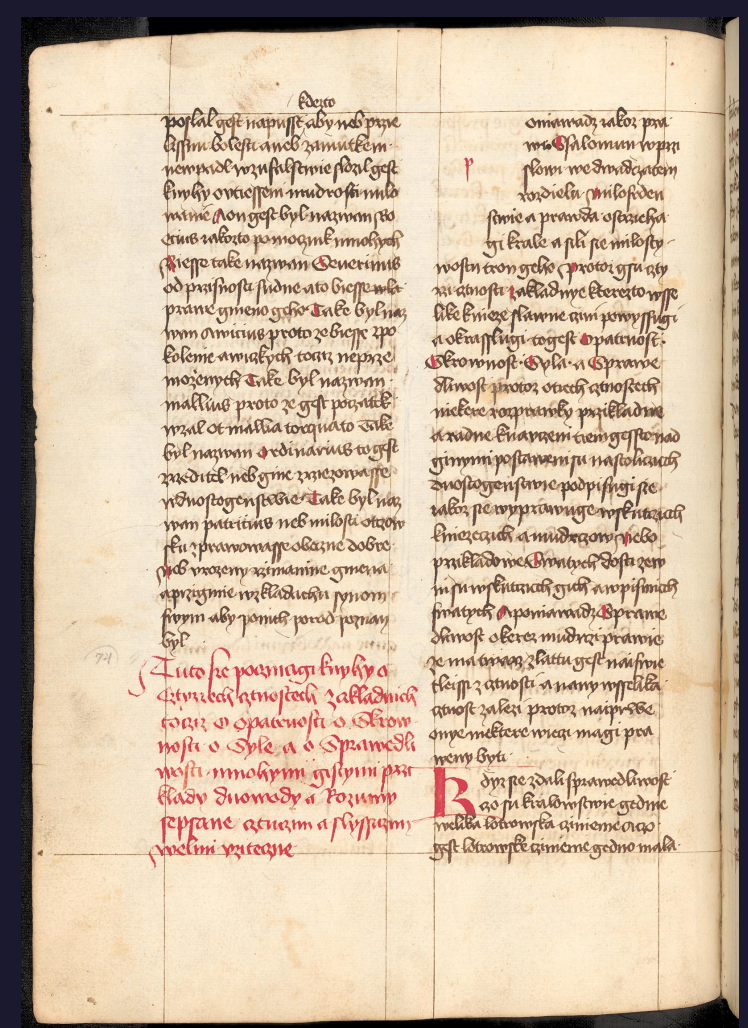 kderto
poslal gest napusst aby neb przie
lissnu bolesti aneb zamutkem
newpadl wzufalstwie slozil gest
knyhy o vtiessem mudrosti milo
wanie A on gest byl nazwan Bo
ecius iakozto pomoczník mnohych
Biesse take nazwan Seuerinus
od przisnosti sudne ato biesse wla
prawe gmeno geho Take byl naz
wan Anicius proto ze biesse zpo
kolenie a wizkych tociz neprze
możenych Take byl nazwan
mallius proto ze gest poczatek
wzal ot mallia torquato Take
byl nazwan Ordinarius to gest
zrzeditel neb gine zrziezowasse
wduostogenstwie Take byl naz
wan patritius neb milosti otczow
sku zprawowasse obecznie dobre
Neb vrozeny rzimanine gmena
a przigmie wzkladachu synom
swym aby ponich porod poznan
byl
Tuto sie poczinagi knyhy o
Cztyrzech cztnostech zakladnich
tociz o Opatrnosti o Skrow
nosti o Syle a o Sprawedli
wosti mnohymi gistymi przi
klady duowody a Rozumy
sepsane cztucim a slyssicim
welmi vzitecznie
oniawadz iakoz pra
wi Salomun w przi
p
slowi we dwadczatem
rozdielu Milosrden
stwie a prawda ostrzieha
gi krale a sili sie milosty
wosti tron geho Protoz gsu czty
rzi cztnosti zakladnye kterezto wsse
like knieze slawne czini powyssugi
a okrasslugi to gest Opatrnost
Skrownost Syla a Sprawe
dliwost protoz o trech cztnostech
niekere rozprawky przikladne
a radne knawczeni tiem gessto nad
ginymi postaweni su na stoliczich
duostogenstwie podpisugi sie
iakoz sie wyprawuge w skutciech
kniezecich a mudrczow Nebo
przikladowe Swatych dosti zew
ni su w skutcich gich a w pismiech
swatych A poniawadz Sprawe
dliwost o kerez mudrzi prawie
ze ma twarz zlattu gest nai swie
tleissi z cztnosti a nany wsselika
cztnost zalezi protoz naiprwe
o nye niektere wieczi magi pra
weny byti
Kdyz sie zdali sprawedliwost
czo su kralowstwie gedine
welika lotrowska czinienie A czo
gest lotrowske czinienie gedno mala
74